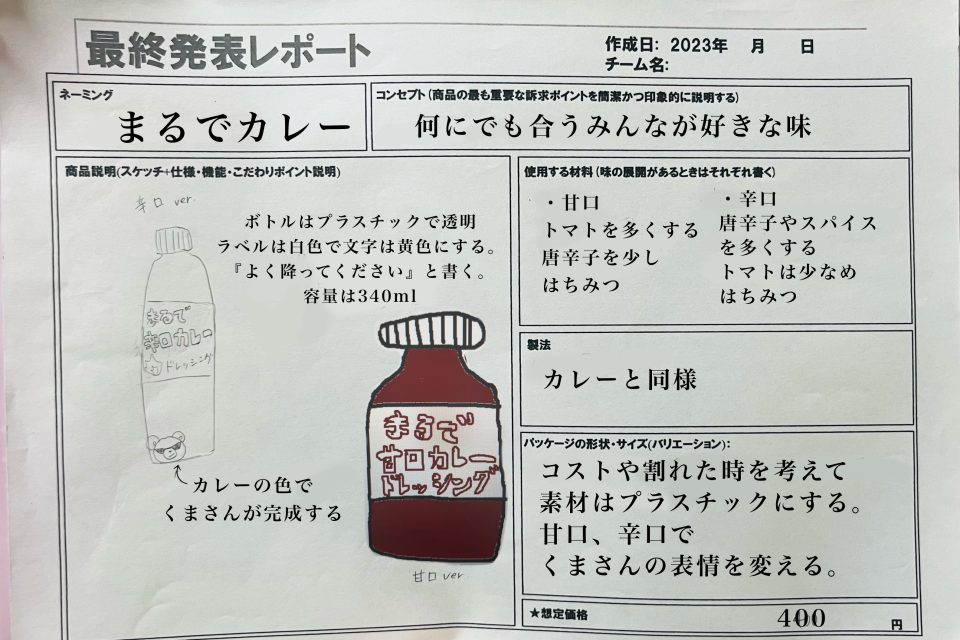 最終発表レポート
作成日: 2023年 月 日
チーム名:
ネーミング
まるでカレー
コンセプト(商品の最も重要な訴求ポイントを簡潔かつ印象的に説明する)
何にでも合うみんなが好きな味
商品説明(スケッチ+仕様・機能・こだわりポイント説明)
辛口 ver.
ボトルはプラスチックで透明
ラベルは白色で文字は黄色にする。
『よく降ってください』と書く。
容量は340ml
まるで
辛口カレー
ドレッシング
カレーの色で
くまさんが完成する
まるで
甘口カレー
ドレッシング
甘口 ver.
使用する材料(味の展開があるときはそれぞれ書く)
・甘口
トマトを多くする
唐辛子を少し
はちみつ
・辛口
唐辛子やスパイス
を多くする
トマトは少なめ
はちみつ
製法
カレーと同様
パッケージの形状・サイズ(バリエーション):
コストや割れた時を考えて
素材はプラスチックにする。
甘口、辛口で
くまさんの表情を変える。
★想定価格
400 円